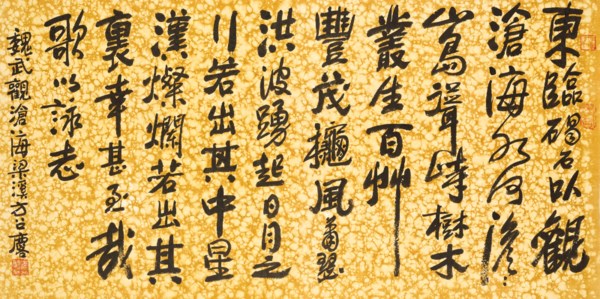 東臨碣石以觀
滄海水何澹〻
山島聳峙樹木
叢生百艸
豐茂穐風蕭瑟
洪波踴起日月之
行若出其中星
漢燦爛若出其
裏幸甚至哉
歌以詠志
魏武觀滄海梁溪万公